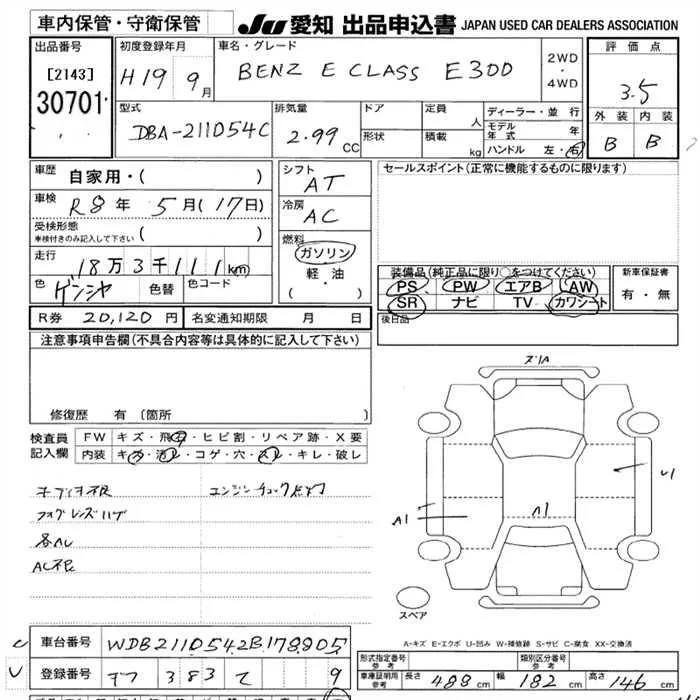 車内保管・守衛保管
JU 愛知 出品申込書 JAPAN USED CAR DEALERS ASSOCIATION
出品番号
[2143]
30701
初度登録年月
H19 9月
車名・グレード
BENZ E CLASS E300
2WD
・
4WD
評価点
3.5
外装 内装
B B
型式
DBA-211054C
排気量
2.99 CC
ドア
形状
定員 人
積載 kg
ディーラー・並行
モデル年式 年
ハンドル 左・右
車歴 自家用・( )
車検 R8年 5月(17日)
受検形態
車検付きのみ記入して下さい ( )
走行
18万3千111km
色 色替 色コード
シフト
AT
冷房
AC
燃料
ガソリン
軽・油
( ・ )
セールスポイント(正常に機能するものに限ります)
装備品(純正品に限り○をつけてください)
PS PW エアB AW
SR ナビ TV カワシート
新車保証書
有・無
後日品
R券 20,120円 名変通知期限 月 日
注意事項申告欄(不具合内容等は具体的に記入して下さい)
修復歴 有(箇所 )
検査員
記入欄
FW キズ・飛石・ヒビ割・リペア跡・X要
内装 キズ・汚レ・コゲ・穴・スレ・キレ・破レ
オーディオ不良 エンジンチェック点灯
フォグレンズハゲ
各AU
AC不良
ズレA
A1
U1
スペア
A-キズ E-エクボ U-凹み W-補修跡 S-サビ C-腐食 XX-交換済
車台番号 WDB2110542B178805
登録番号 383 て 9
形式指定番号
参考
類別区分番号
参考
車庫証明用
参考
長さ 488 cm 幅 182 cm 高さ 146 cm